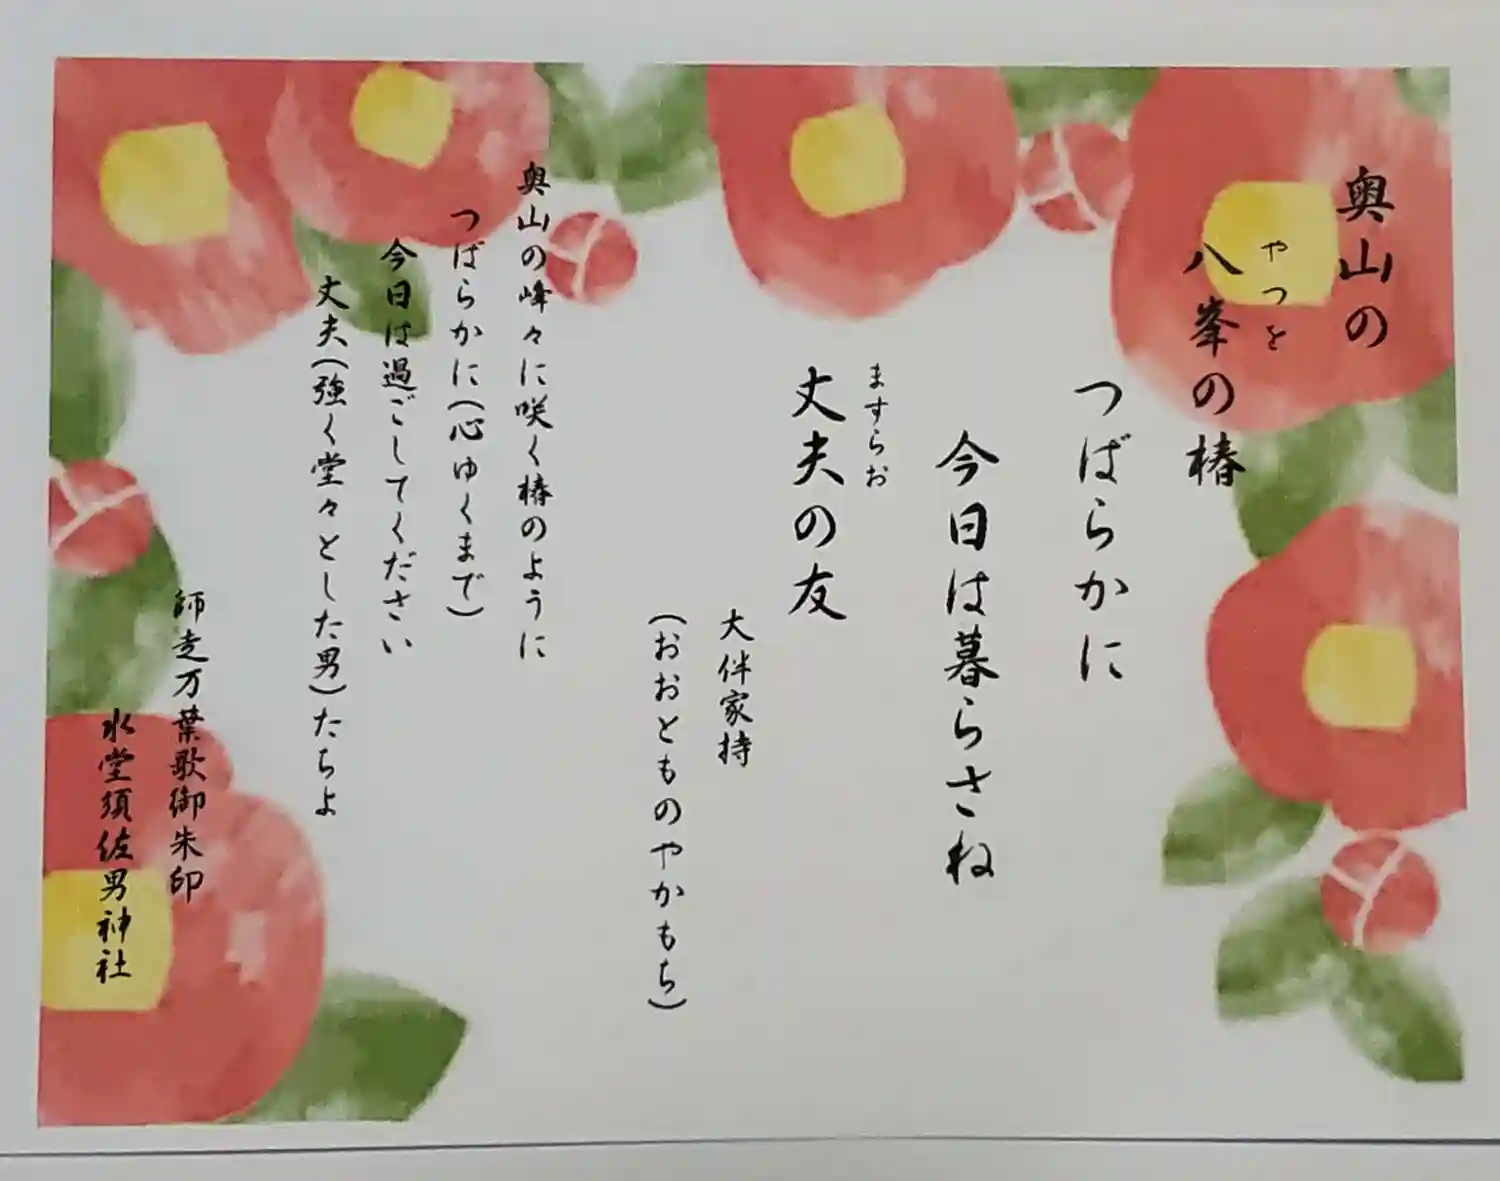 奥山の
やつを
八峯の椿
つばらかに
今日は暮らさね
ますらお
丈夫の友
大伴家持
(おおとものやかもち)
奥山の峰々に咲く椿のように
つばらかに(心ゆくまで)
今日は過ごしてください
丈夫(強く堂々とした男)たちよ
師走万葉歌御朱印
水堂須佐男神社